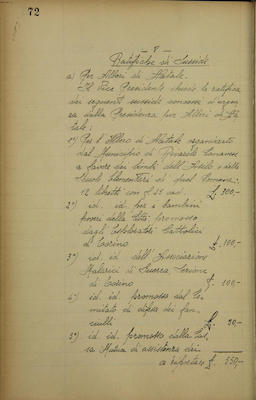 72
- 8 -
Ratifiche di Sussidi
a) Per Alberi di Natale.
Il Vice Presidente chiede la ratifica
dei seguenti sussidi concessi d'urgen
za dalla Presidenza per Alberi di Na
tale:
1°) Per l'Albero di Natale organizzato
dal Municipio di Canavese
a favore dei bimbi dell'Asilo e delle
Scuole Elementari di quel Comune:
12 libretti con £ 25 cad. £. 300,-
2°) id. id. per i bambini
poveri della Città promosso
dagli Esploratori Cattolici
di Torino £. 100,-
3°) id. id. dell'Associazione
di Guerra, Sezione
di Torino £. 100,-
4°) id. id. promosso dal Co-
mitato di difesa dei fan-
ciulli £. 50,-
5°) id. id. promosso dalla Cas
sa Mutua di assistenza dei
a riportare £. 550,-